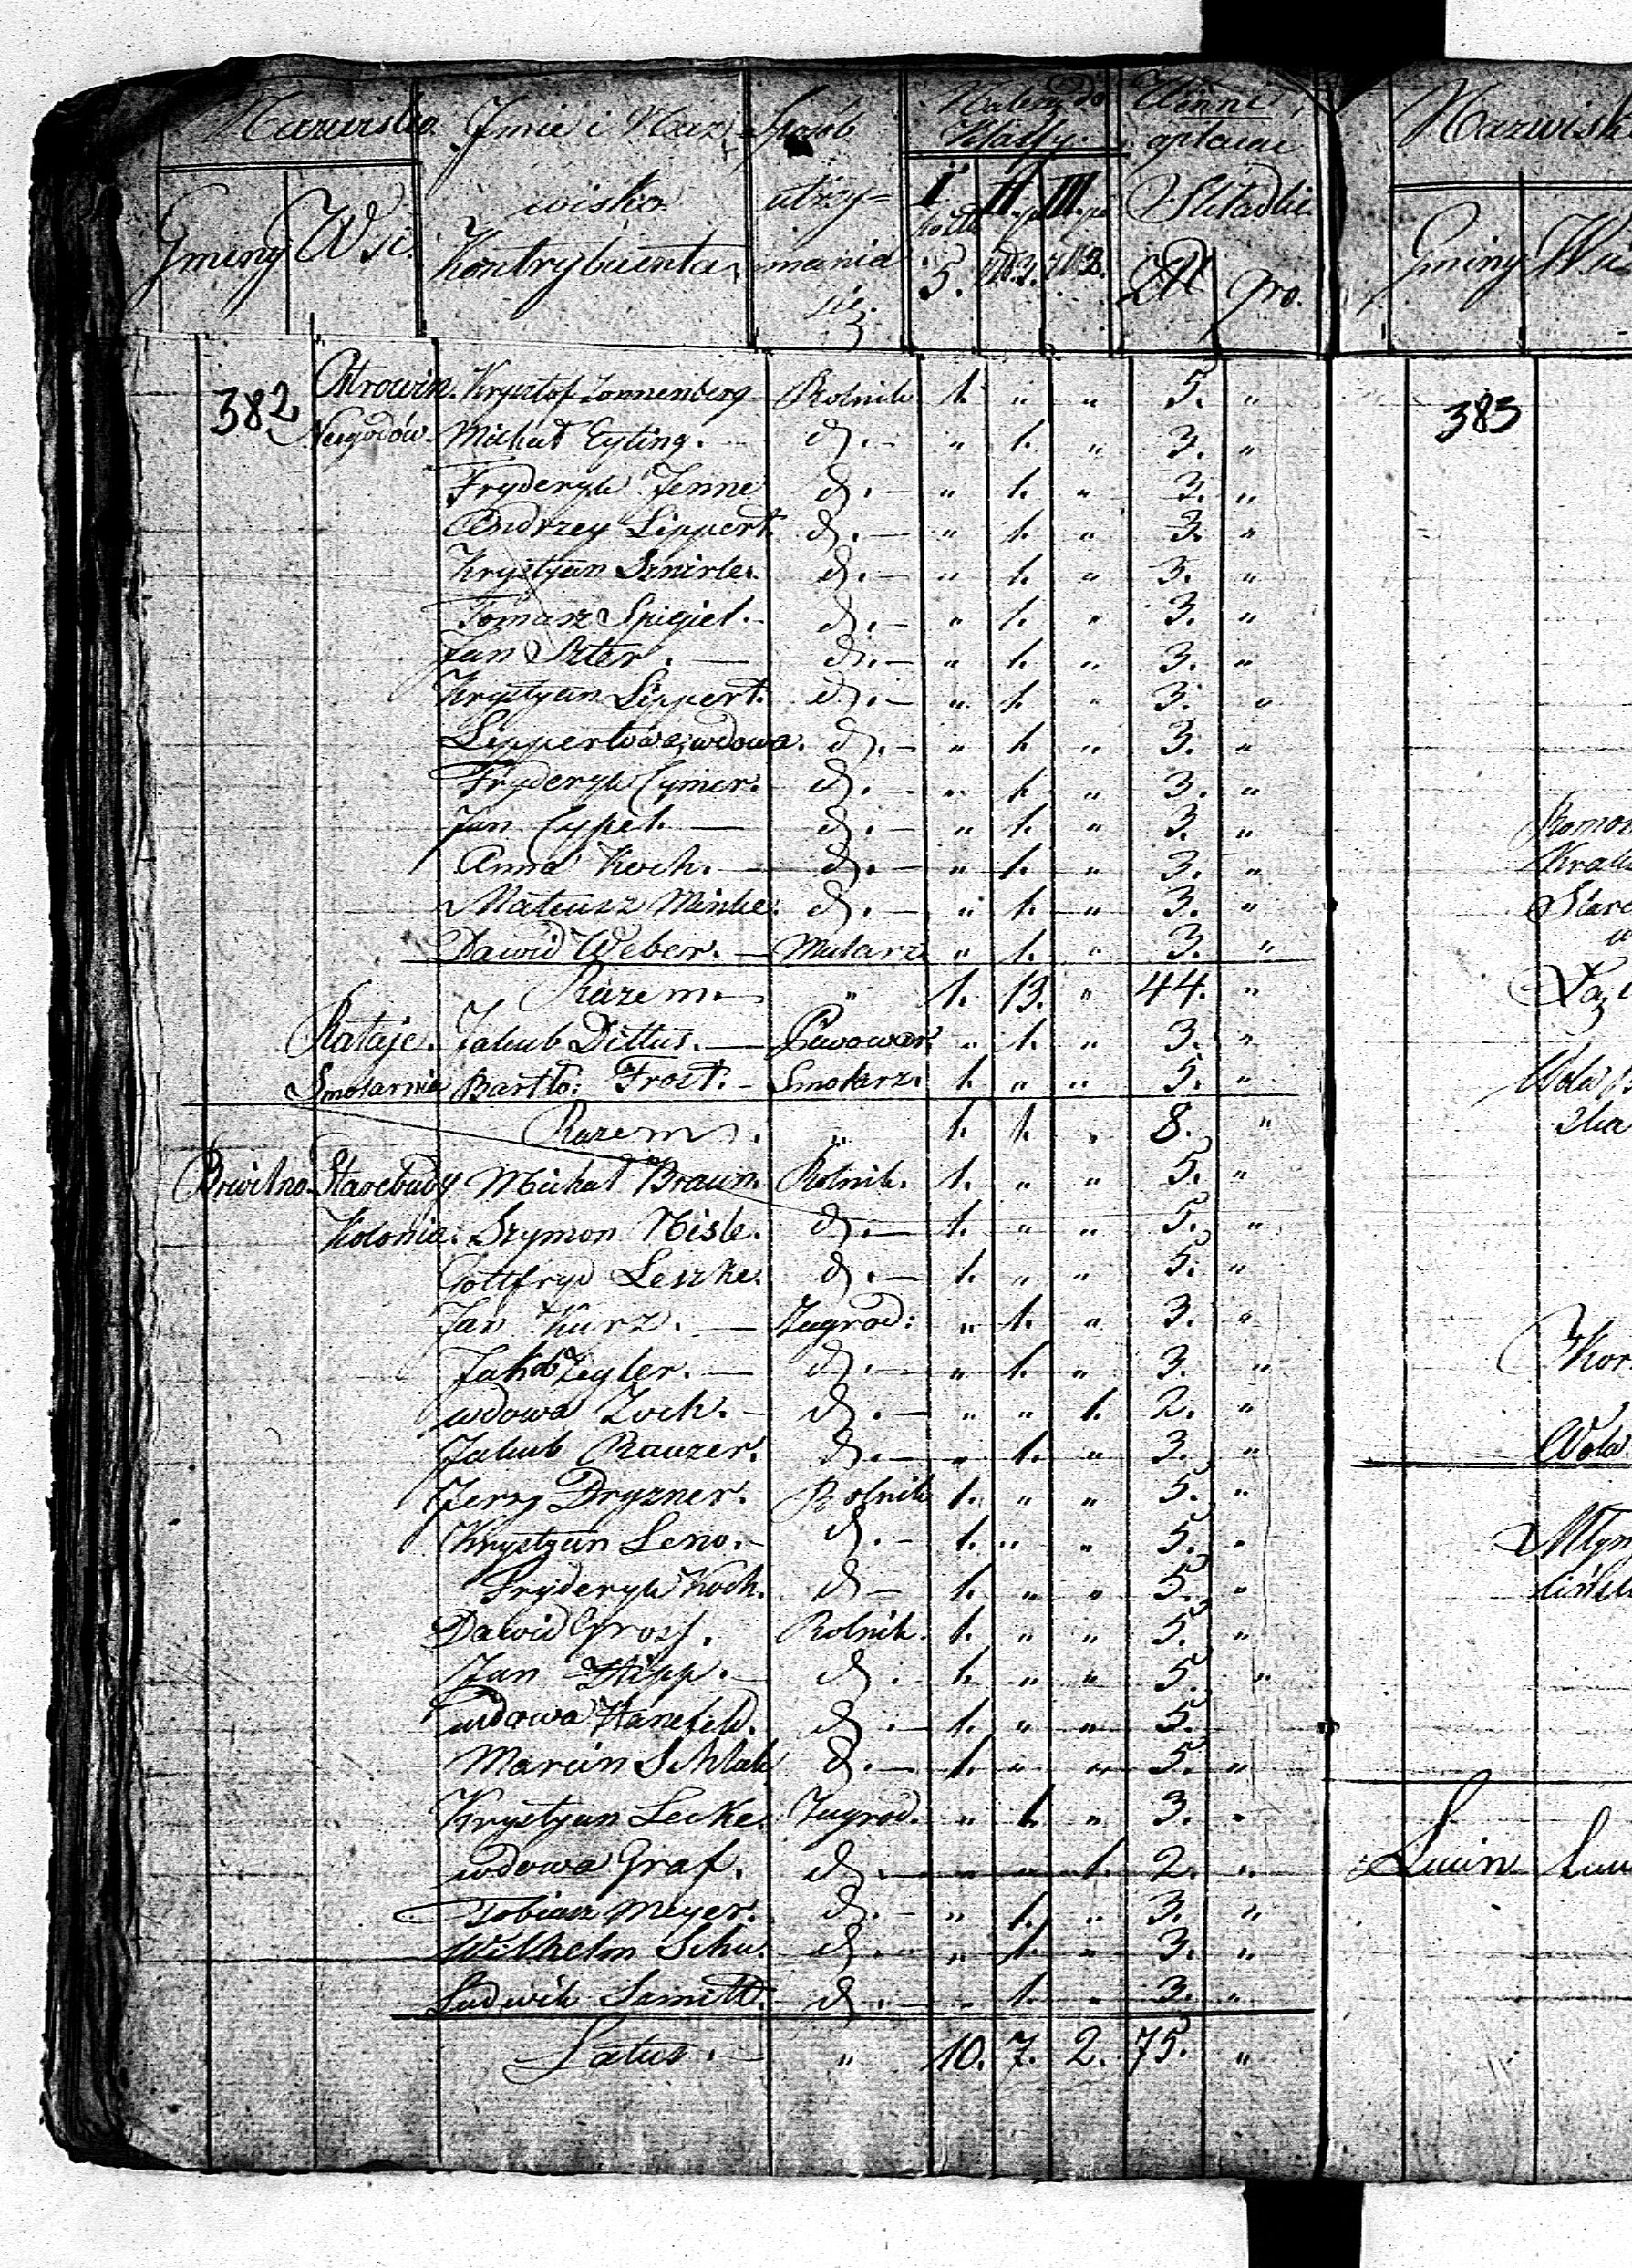 Nazwisko Imie i Naz- Sposób Należą do Winni
Klassy opłacac
Gminy Wsi wisko utrzy= I II III Składki
Kontrybuenta mania 5. 3. 2. Zł gro.
się
382 Ostrowin. Krysztof Zonnenberg Rolnik 1. " " 5. "
Neygodów. Michał Eyting. d. " 1. " 3. "
Fryderyk Jenne d. " 1. " 3. "
Andrzey Lippert. d. " 1. " 3. "
Krystyan Sznirle. d. " 1. " 3. "
Tomasz Spigiel. d. " 1. " 3. "
Jan Szter. d. " 1. " 3. "
Krystyan Lippert. d. " 1. " 3. "
Lippertowa, wdowa. d. " 1. " 3. "
Fryderyk Cymer. d. " 1. " 3. "
Jan Cypel. d. " 1. " 3. "
Anna Koch. d. " 1. " 3. "
Mateusz Minke. d. " 1. " 3. "
Dawid Weber. Mularz " 1. " 3. "
Razem " 1. 13. " 44. "
Rataje. Jakub Dittus. Piwowar. " 1. " 3. "
Smolarnia Bartło: Frost. Smolarz. 1. " " 5. "
Razem. " 1. 1. " 8. "
Brwilno Starebudy Michał Braun. Rolnik. 1. " " 5. "
Kolonia. Szymon Nisle. d. 1. " " 5. "
Gottfryd Leszke. d. 1. " " 5. "
Jan Kurz. Zagrod: " 1. " 3. "
Jakob Zeyler. d. " 1. " 3. "
wdowa Zoch. d. " " 1. 2. "
Jakub Rauzer. d. " 1. " 3. "
Jerzy Dryzner. Rolnik 1. " " 5. "
Krystyan Leno. d. 1. " " 5. "
Fryderyk Koch. d 1. " " 5. "
Dawid Gross. Rolnik. 1. " " 5. "
Jan Hipp. d. 1. " " 5. "
wdowa Hanefeld. d. 1. " " 5.
Marcin Schlak d. 1. " " 5. "
Krystyan Lecke. Zagrod. " 1. " 3. "
wdowa Graf. d. " " 1. 2. "
Tobiasz Meyer. d. " 1. " 3. "
Wilhelm Schu. d. " 1. " 3. "
Ludwik Szmitt. d. " 1. " 3. "
Latus. " 10. 7. 2. 75. "
Nazwisk
Gminy Ws
383
Stare
Wola
Kor
Wola
Młyn